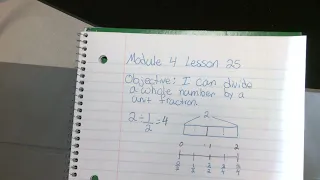 Module 4 Lesson 25
Objective: I can divide
a whole number by a
unit fraction.
2 ÷ 1/2 = 4
2
0 1 2
0/2 1/2 2/2 3/2 4/2